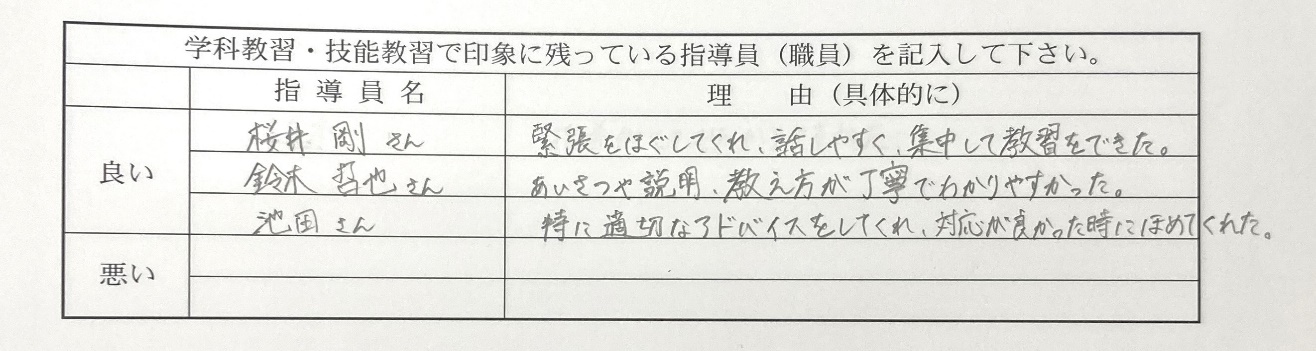 学科教習・技能教習で印象に残っている指導員（職員）を記入して下さい。
指導員名 理由（具体的に）
良い
桜井 剛 さん 緊張をほぐしてくれ、話しやすく、集中して教習をできた。
鈴木 哲也 さん あいさつや説明、教え方が丁寧でわかりやすかった。
池田 さん 特に適切なアドバイスをしてくれ、対応が良かった時にほめてくれた。
悪い